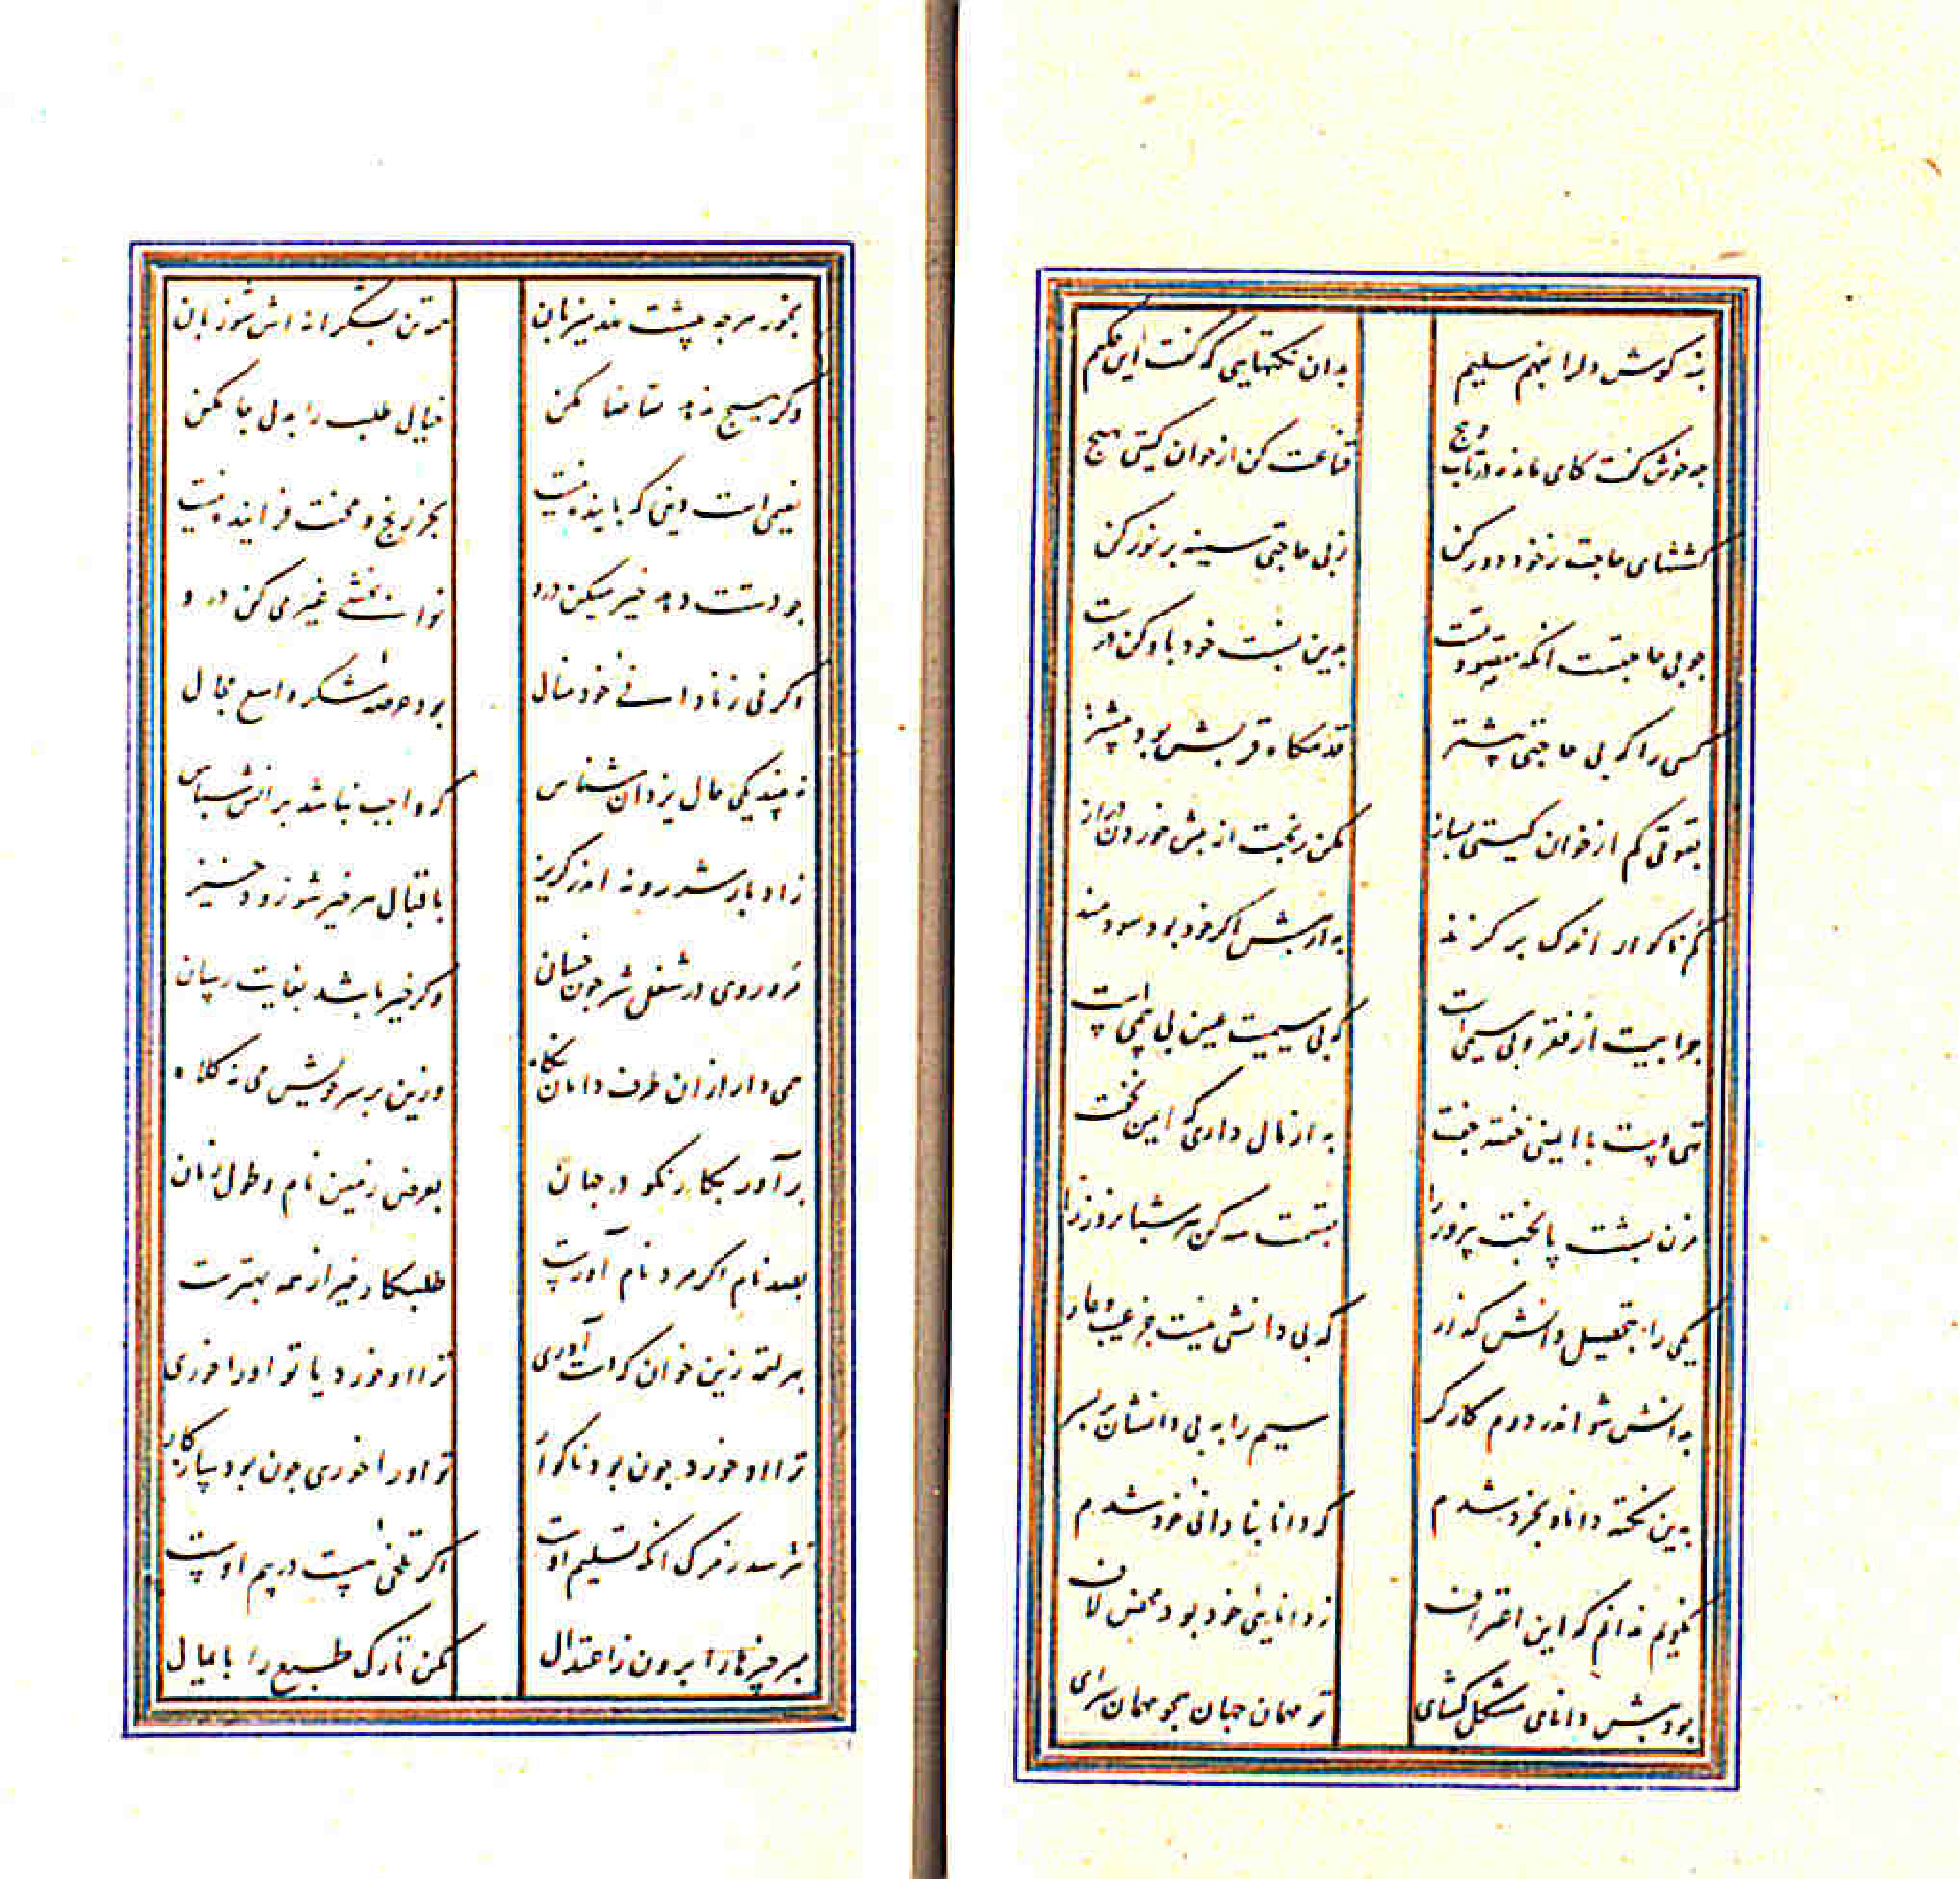 بنه گوش دلرا بفهم سلیم بدان نکتهایی که گفت این حکیم
چو خوش گفت کای مانده در تاب و پیچ قناعت کن از خوان گیتی بهیچ
کششهای حاجت ز خود دور کن ز بی حاجتی سینه پر نور کن
چو بی حاجتست آنکه مقصود تست بدین نسبت خود باو کن درست
کسی را که بی حاجتی بیشتر قدمگاه قربش بود پیشتر
بقوتی کم از خوان گیتی بساز مکن رنجت از بیش خوردن دراز
کم ناگوار اندک پر گزند به از بیش اگر خود بود سودمند
چرا بیمت از فقر و بی سیمی است که بی سیمیت عین بی بیمی است
تهی دست با ایمنی خفته جفت به از مال داری که ایمن نخفت
مزن پشت پا بخت پیروز را بقسمت سه کن هر شبانروز را
یکی را بتحصیل دانش گذار که بی دانشی نیست جز عیب و عار
بدانش شو اندر دوم کارگر سیم را به بی دانشان بر بسر
بدین نکته دانا و بخرد شدم که دانا بنادانی خود شدم
نگویم ندانم که این اعتراف ز دانایی خود بود محض لاف
بود پیش دانای مشکل گشای تو مهمان جهان همچو مهمان سرای
بخور هرچه پیشت نهد میزبان همه تن بشکرانه اش شو زبان
وگر هیچ ندهد تقاضا مکن خیال طلب را بدل جا مکن
نعیمی است دینی که پاینده نیست بجز رنج و محنت فزاینده نیست
چو دستت دهد خیر میکن درو نوا بخشی غیری کن درو
وگر نی ز نادانی خود منال بود عرصه شکر واسع مجال
نه بیند یکی حال یزدان شناس که واجب نباشد بر آنش سپاس
ز ادبار شد رو نه اندر گریز باقبال هر خیر شو زود خیز
فرو روی در شغل شر چون خسان وگر خیر باشد بغایت رسان
همی دار از آن طرف دامان نگاه وزین بر سر خویش می نه کلاه
برآور بکار نکو در جهان بعرض زمین نام و طول زمان
بصد نام اگر مرد نام آورست طلبکار خیر از همه بهترست
بهر لقمه زین خوان که دست آوری ترا او خورد یا تو او را خوری
ترا او خورد چون بود ناگوار تو او را خوری چون بود سازگار
نترسد ز مرگ آنکه تسلیم اوست اگر تلخی هست در بیم اوست
مبر چیزها را برون ز اعتدال مکن تارک طبع را پایمال